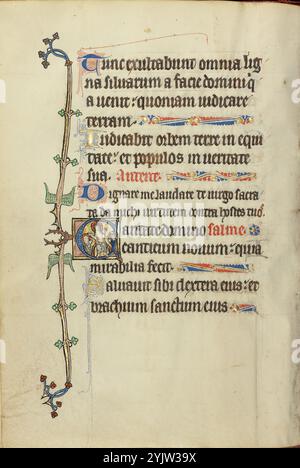 Tunc exultabunt omnia lig
na silvarum a facie domini q̄
a venit: quoniam iudicare
terram.
Iudicabit orbem terre in equi
tate: et populos in veritate
sua. Antene.
Dignare me laudare te virgo sacra
ta da michi virtutem contra hostes tuos
Cantate domino salme
canticum novum: quia
mirabilia fecit.
Salvavit sibi dextera eius: et
brachium sanctum eius
alamy
Image ID: 2YJW39X
www.alamy.com